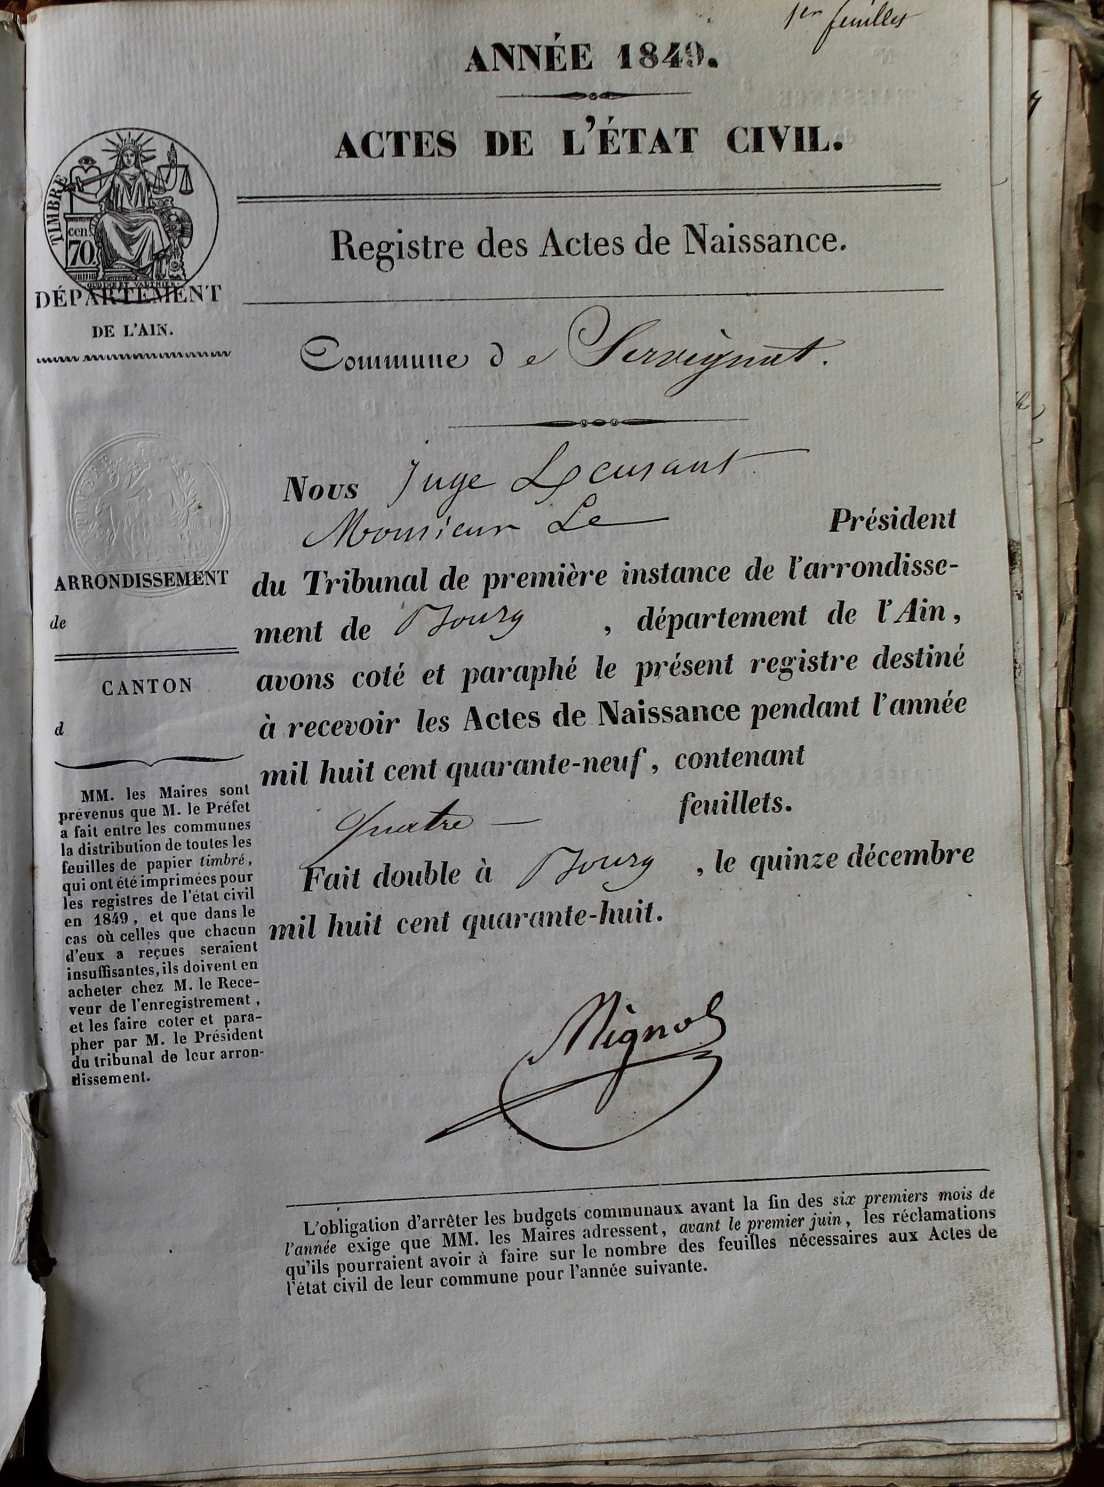 1er feuillet
ANNÉE 1849.
ACTES DE L'ÉTAT CIVIL.
TIMBRE
cen.
70
DÉPARTEMENT
DE L'AIN.
Registre des Actes de Naissance.
Commune de Servignat.
Nous Juge
Monsieur Le Président
du Tribunal de première instance de l'arrondisse-
ment de Bourg, département de l'Ain,
avons coté et paraphé le présent registre destiné
à recevoir les Actes de Naissance pendant l'année
mil huit cent quarante-neuf, contenant
Quatre feuillets.
Fait double à Bourg, le quinze décembre
mil huit cent quarante-huit.
ARRONDISSEMENT
de
CANTON
d
MM. les Maires sont
prévenus que M. le Préfet
a fait entre les communes
la distribution de toutes les
feuilles de papier timbré,
qui ont été imprimées pour
les registres de l'état civil
en 1849, et que dans le
cas où celles que chacun
d'eux a reçues seraient
insuffisantes, ils doivent en
acheter chez M. le Rece-
veur de l'enregistrement,
et les faire coter et para-
pher par M. le Président
du tribunal de leur arron-
dissement.
L'obligation d'arrêter les budgets communaux avant la fin des six premiers mois de
l'année exige que MM. les Maires adressent, avant le premier juin, les réclamations
qu'ils pourraient avoir à faire sur le nombre des feuilles nécessaires aux Actes de
l'état civil de leur commune pour l'année suivante.